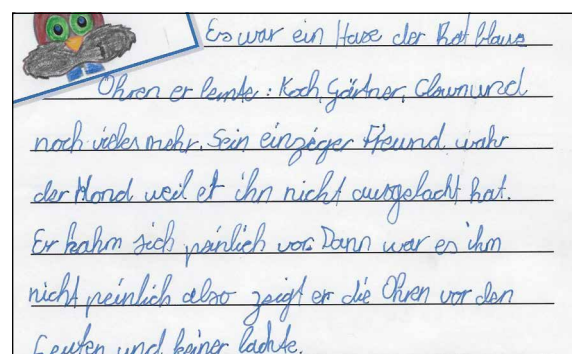 Es war ein Hase der Rot blaue
Ohren er lernte: Koch, Gärtner, Clown und
noch vieles mehr. Sein einzeger Freund wahr
der Mond weil er ihn nicht ausgelacht hat.
Er kahm sich peinlich vor. Dann war es ihm
nicht peinlich also zeigt er die Ohren vor den
Leuten und keiner lachte.